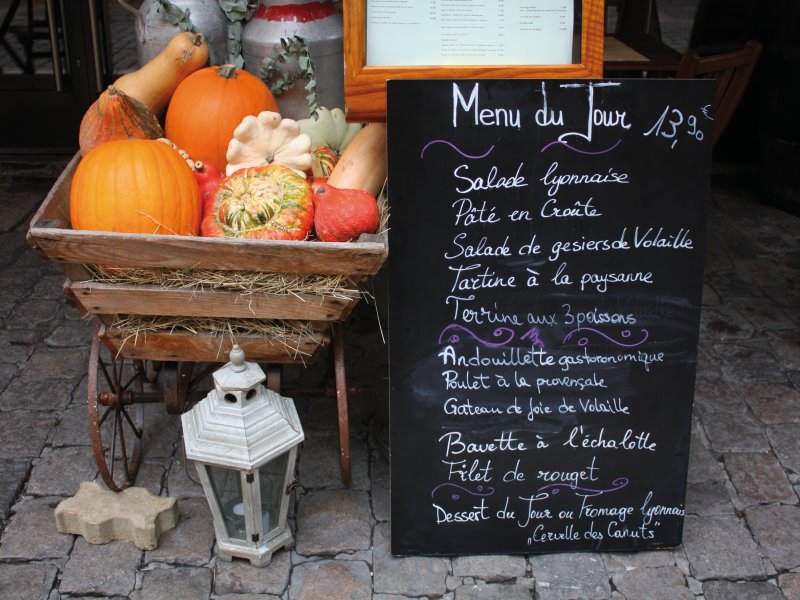 Menu du Jour 13,90 €
Salade lyonnaise
Pâté en Croûte
Salade de gesiers de Volaille
Tartine à la paysanne
Terrine aux 3 poissons
Andouillette gastronomique
Poulet à la provençale
Gateau de foie de Volaille
Bavette à l'échalotte
Filet de rouget
Dessert du Jour ou Fromage lyonnais
"Cervelle des Canuts"